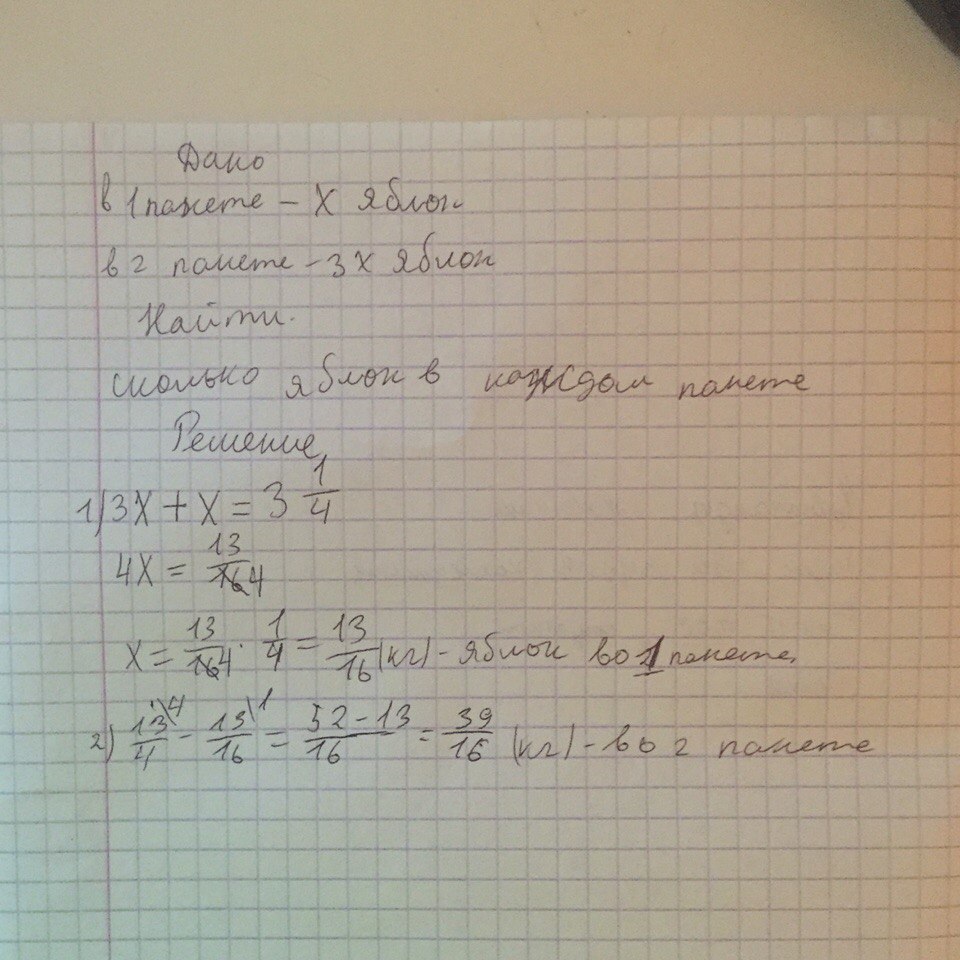 Дано
в 1 пакете - X яблок
в 2 пакете - 3X яблок
Найти.
сколько яблок в каждом пакете
Решение
1) 3X + X = 3 1/4
4X = 13/4
X = 13/4 · 1/4 = 13/16 (кг) - яблок во 1 пакете.
2) 13/4 \4 - 13/16 \1 = 52-13/16 = 39/16 (кг) - во 2 пакете